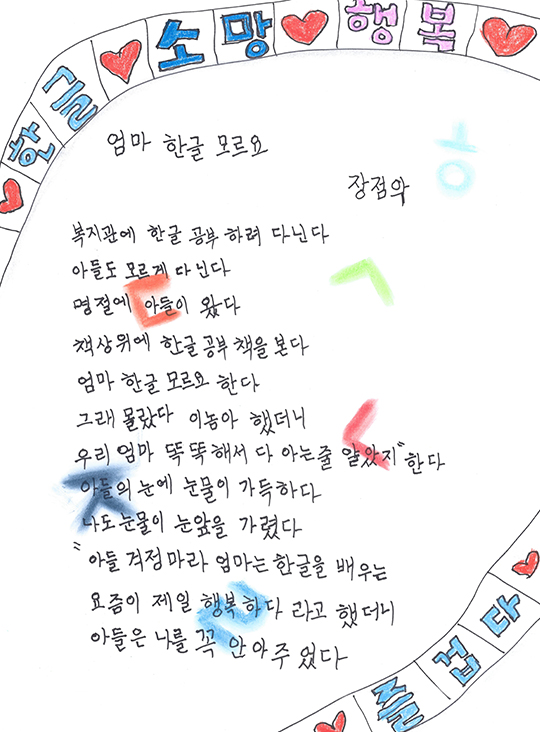 한글 ♥ 소망 ♥ 행복 ♥
엄마 한글 모르요
장점악
ㅎ
복지관에 한글 공부 하려 다닌다
아들도 모르게 다닌다
ㄱ
명절에 아들이 왔다
ㄷ
책상위에 한글 공부 책을 본다
엄마 한글 모르요 한다
그래 몰랐다 이놈아 했더니
우리 엄마 똑똑해서 다 아는줄 알았지" 한다
아들의 눈에 눈물이 가득하다
ㅈ
나도 눈물이 눈앞을 가렸다
"아들 걱정마라 엄마는 한글을 배우는
요즘이 제일 행복하다 라고 했더니
아들은 나를 꼭 안아주었다
♥ 즐겁다 ♥